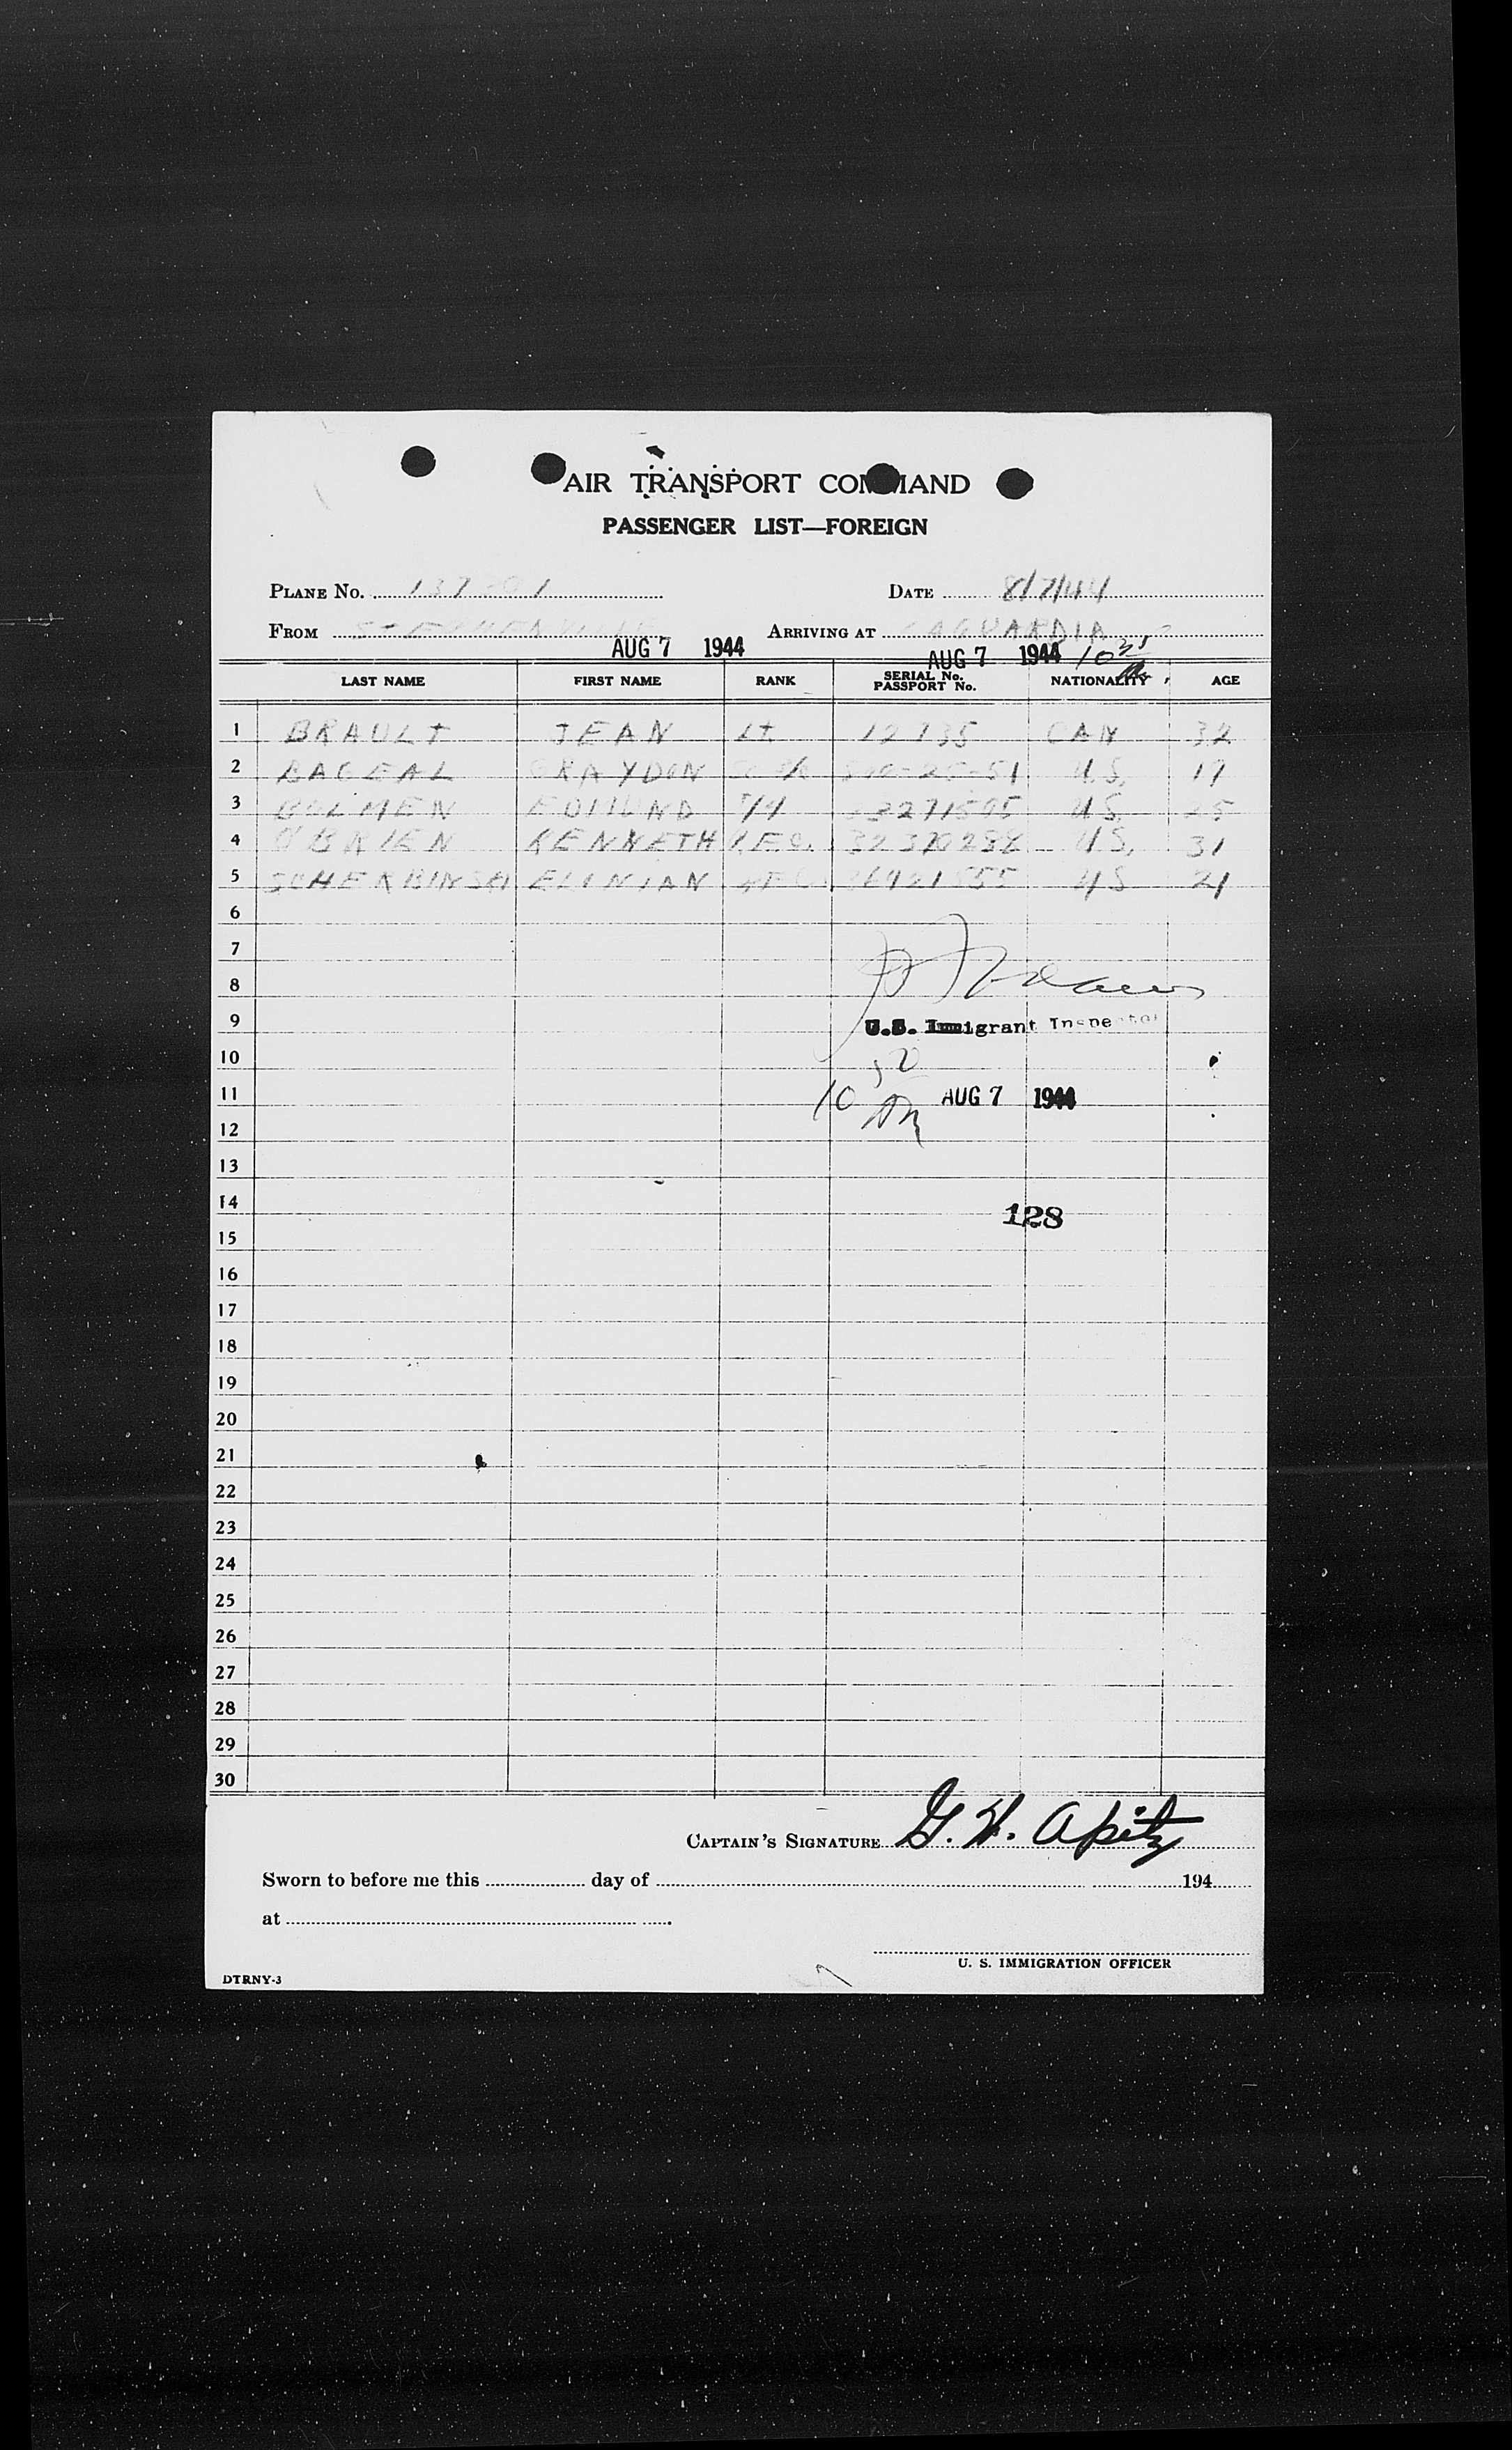 AIR TRANSPORT COMMAND
PASSENGER LIST—FOREIGN
PLANE No. 137-01 DATE 8/7/44
FROM STEPHENVILLE ARRIVING AT LAGUARDIA
AUG 7 1944 AUG 7 1944 10 35
LAST NAME FIRST NAME RANK SERIAL No. PASSPORT No. NATIONALITY AGE
1 BRAULT JEAN Lt 12735 CAN 32
2 U.S. 19
3 EDMUND T/4 U.S. 25
4 O'BRIEN KENNETH P.F.C. 32370298 U.S. 31
5 US 21
6
7
8
9 U.S. Immigrant Inspector
10
11 10 AM AUG 7 1944
12
13
14 128
15
16
17
18
19
20
21
22
23
24
25
26
27
28
29
30
CAPTAIN'S SIGNATURE G. H. Apitz
Sworn to before me this day of 194
at
U. S. IMMIGRATION OFFICER
DTRNY-3